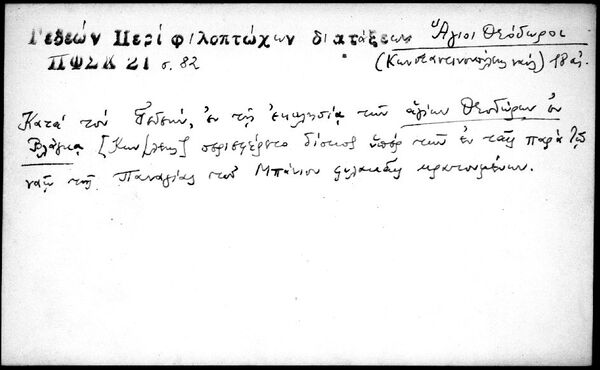 Γεδεών Περί φιλοπτώχων διατάξεων Ἅγιοι Θεόδωροι
ΠΦΣΚ 21 σ. 82 (Κωνσταντινουπόλεως ναός) 18 αἰ.
Κατά τόν Γεδεών, ἐν τῇ ἐκκλησίᾳ τῶν ἁγίων Θεοδώρων ἐν
Βλάγκᾳ [Κων/λεως] περιεφέρετο δίσκος ὑπέρ τῶν ἐν ταῖς παρά τῷ
ναῷ τῆς Παναγίας τοῦ Μπάνιου φυλακαῖς κρατουμένων.